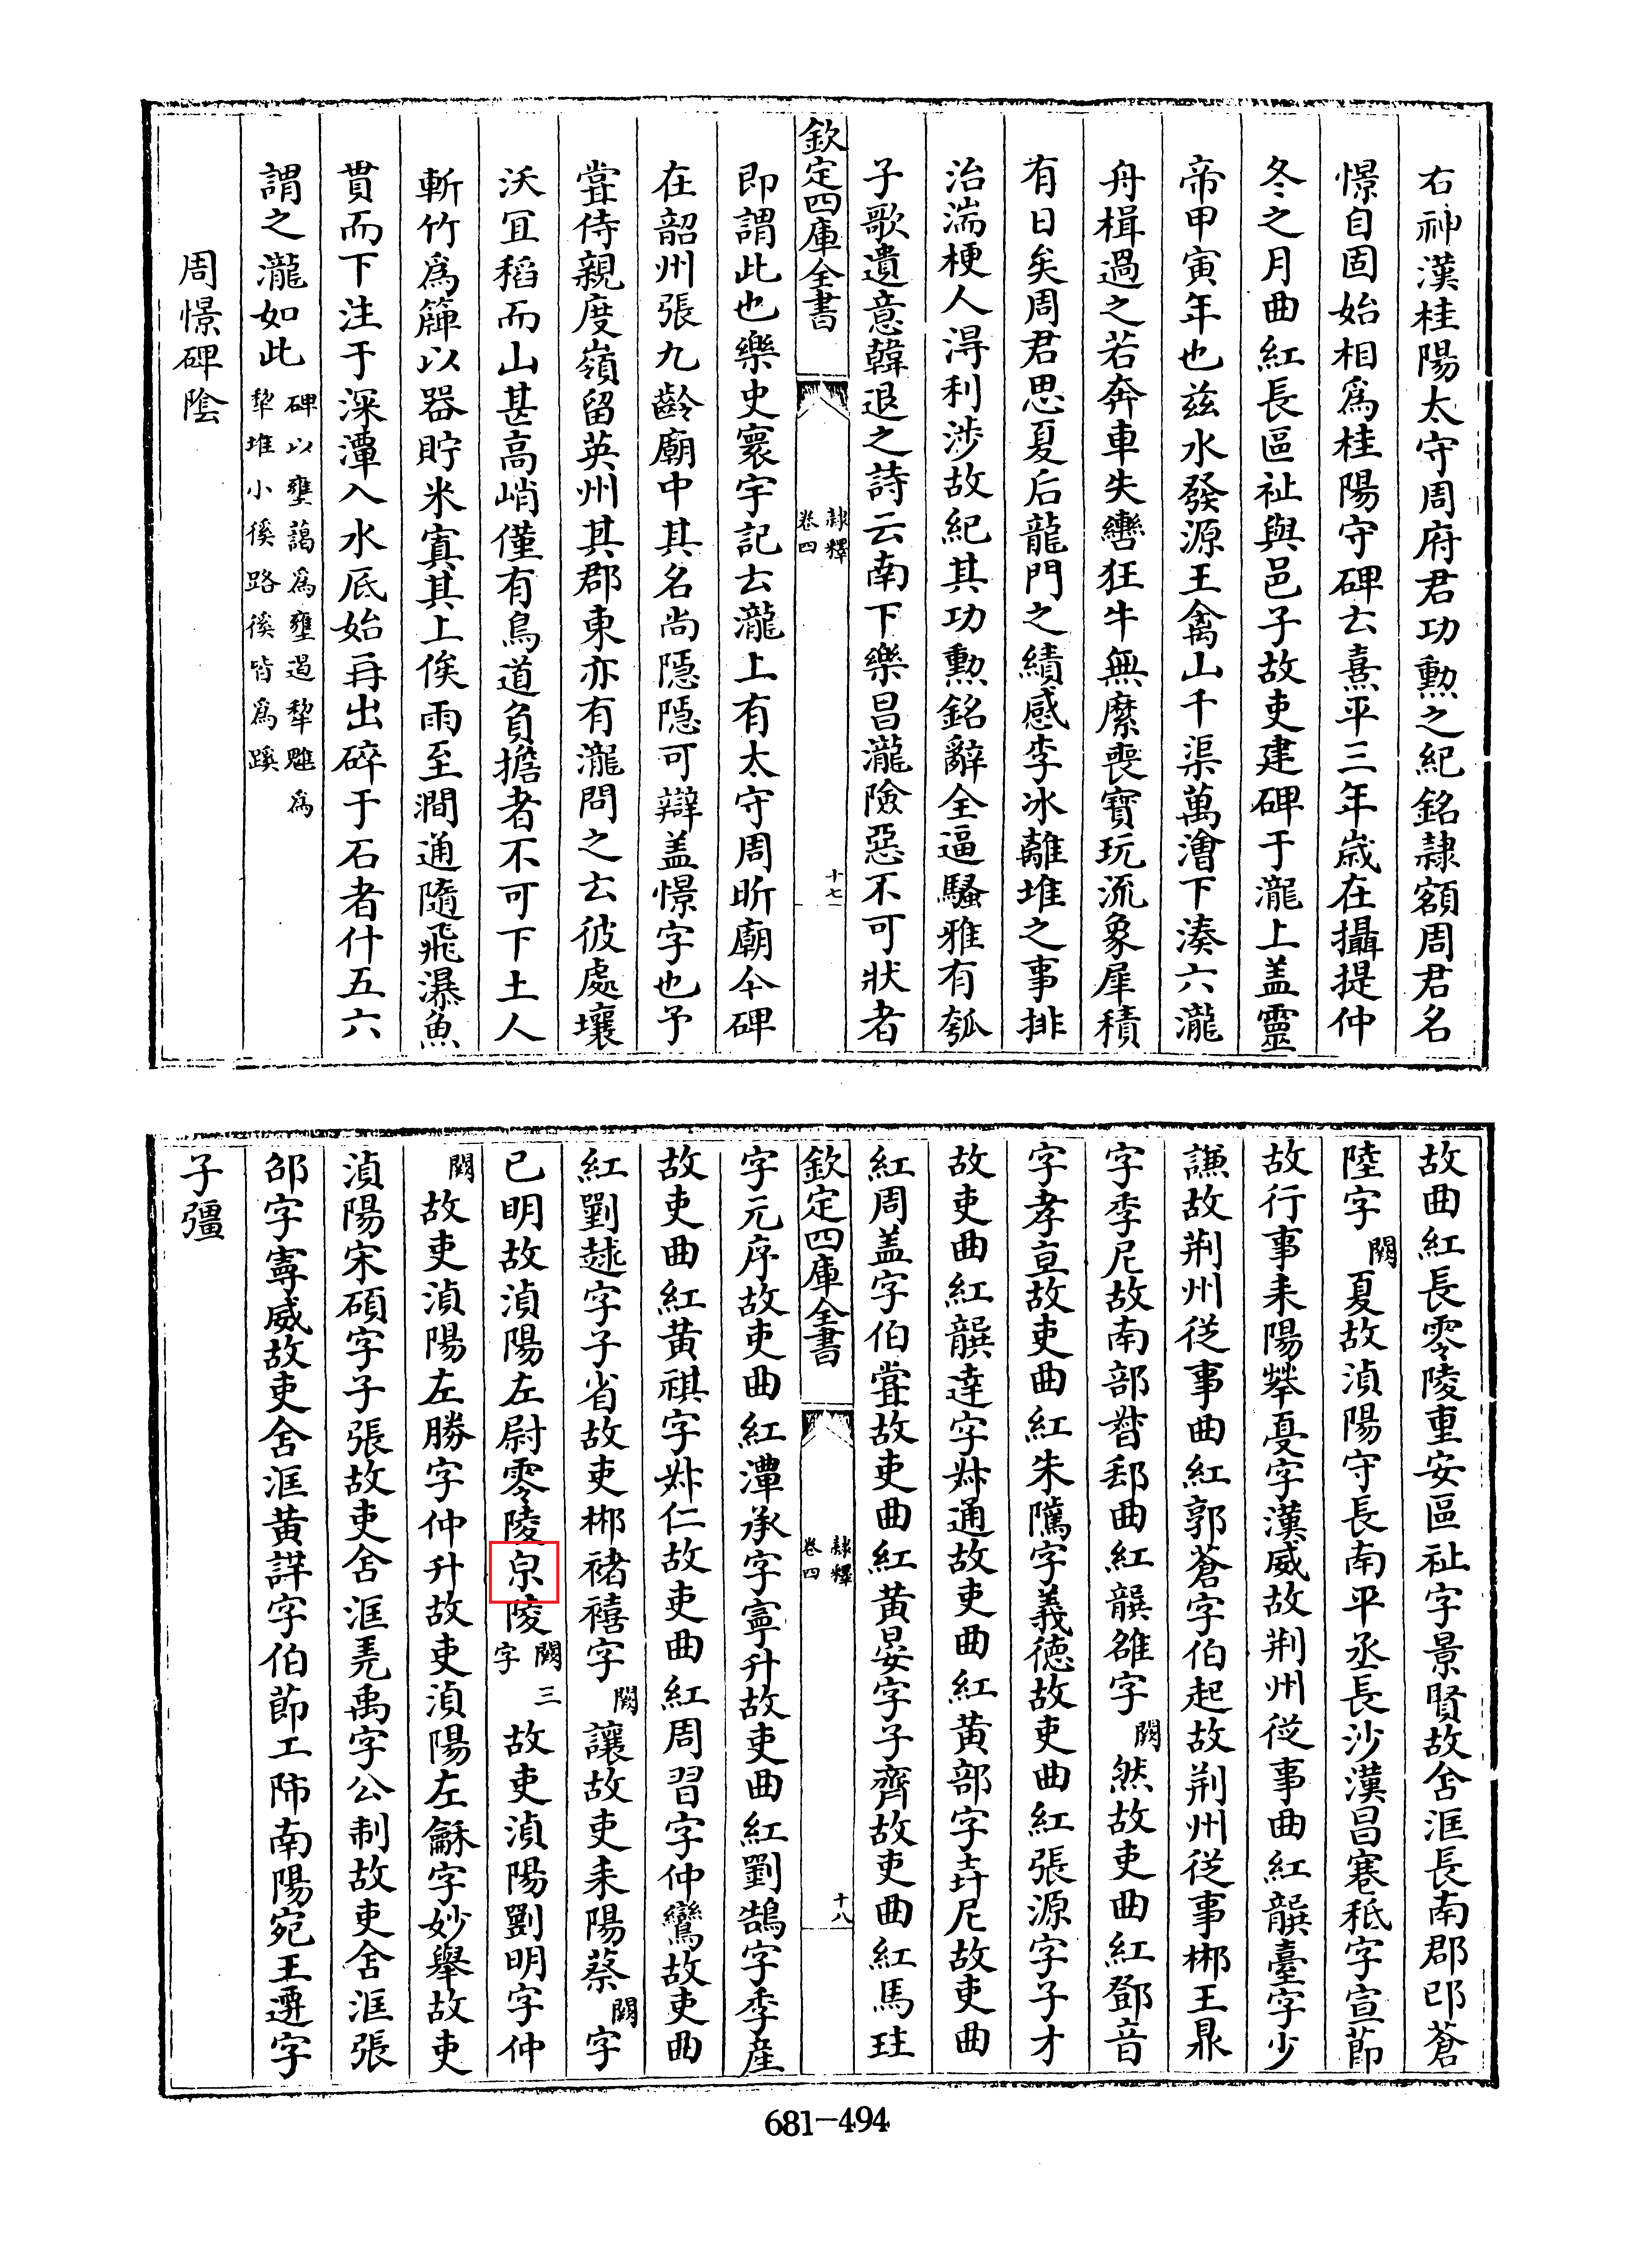 右神漢桂陽太守周府君功勲之紀銘隷額周君名
憬自固始相爲桂陽守碑云熹平三年歳在攝提仲
冬之月曲紅長區祉與邑子故吏建碑于瀧上盖靈
帝甲寅年也兹水發源王禽山千渠萬澮下湊六瀧
舟楫過之若奔車失轡狂牛無縻喪寳玩流象犀積
有日矣周君思夏后龍門之績感李冰離堆之事排
治湍梗人淂利涉故紀其功勲銘辭全逼騷雅有瓠
子歌遺意韓退之詩云南下樂昌瀧險惡不可狀者
欽定四庫全書
隷釋
卷四
十七
即謂此也樂史寰宇記云瀧上有太守周昕廟今碑
在韶州張九齡廟中其名尚隱隱可辯盖憬字也予
甞侍親度嶺留英州其郡東亦有瀧問之云彼處壤
沃冝稻而山甚高峭僅有鳥道負擔者不可下土人
斬竹爲簰以器貯米寘其上俟雨至澗通隨飛瀑魚
貫而下注于深潭入水底始再出碎于石者什五六
謂之瀧如此
碑以壅藹爲壅遏犂魋爲
犂堆小徯路徯皆爲蹊
周憬碑隂
故曲紅長零陵重安區祉字景賢故含洭長南郡邔蒼
陸字闕夏故湞陽守長南平丞長沙漢昌蹇秪字宣節
故行事耒陽犖憂字漢威故荆州從事曲紅龔臺字少
謙故荆州從事曲紅郭蒼字伯起故荆州從事郴王鼎
字季尼故南部督郵曲紅龔雒字闕然故吏曲紅鄧音
字孝亘故吏曲紅朱騭字義徳故吏曲紅張源字子才
故吏曲紅龔逹字叔通故吏曲紅黄部字尌尼故吏曲
紅周盖字伯甞故吏曲紅黄晏字子齊故吏曲紅馬珪
欽定四庫全書
隷釋
卷四
十八
字元序故吏曲紅潭承字寧升故吏曲紅劉鵠字季産
故吏曲紅黄祺字叔仁故吏曲紅周習字仲鸞故吏曲
紅劉越字子省故吏郴禇禧字闕讓故吏耒陽蔡闕字
已明故湞陽左尉零陵𣆶陵闕三字故吏湞陽劉明字仲
闕故吏湞陽左勝字仲升故吏湞陽左龢字妙舉故吏
湞陽宋碩字子張故吏含洭堯禹字公制故吏含洭張
邵字寧威故吏含洭黄詳字伯節工師南陽宛王遷字
子彊
681-494